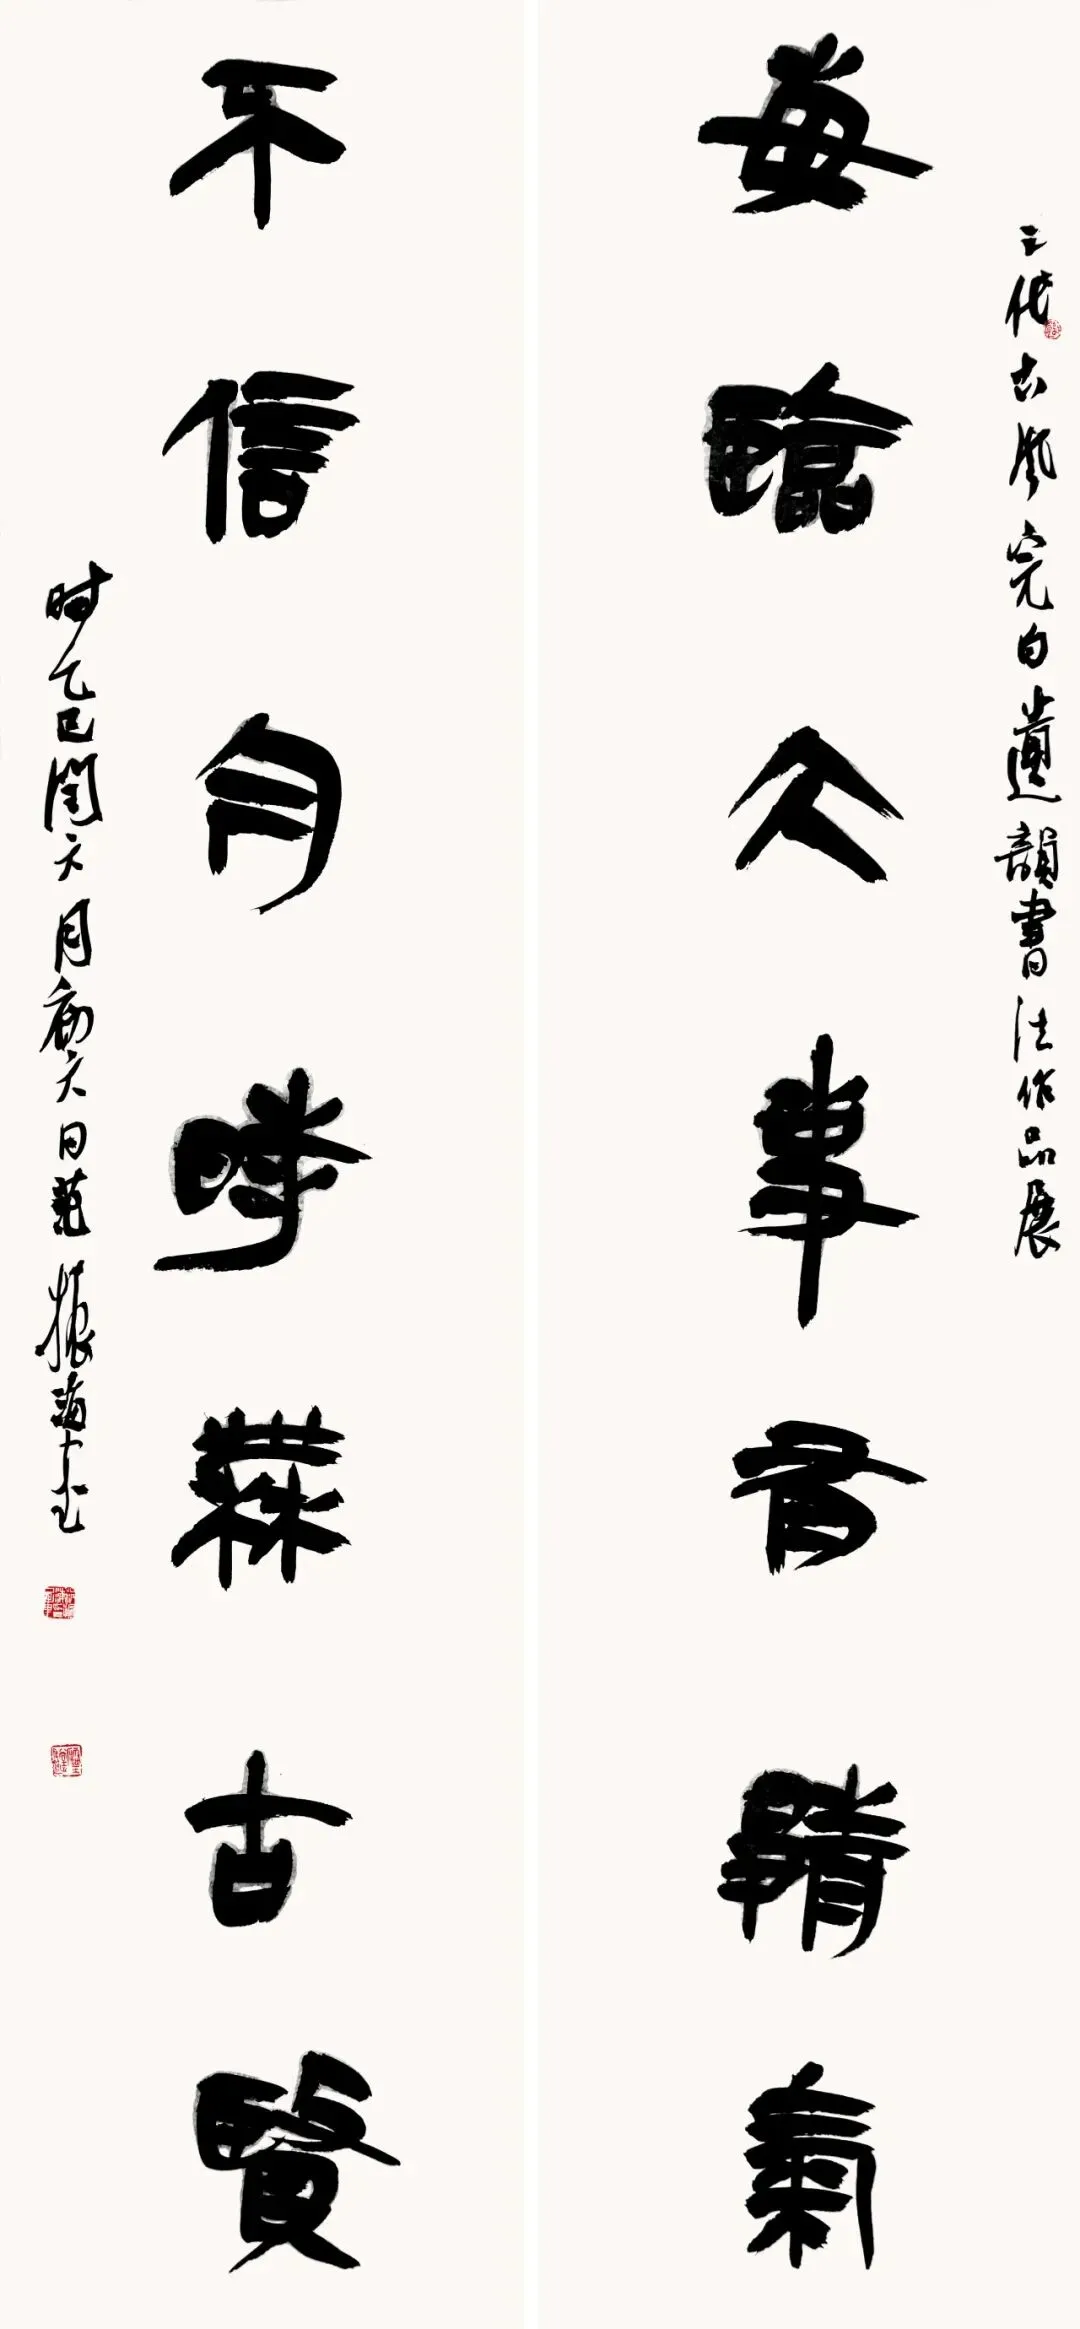 三代古風完白遺韻書法作品展
每臨大事有靜氣
不信今時無古賢
时乙巳閏六月初六日范振海书